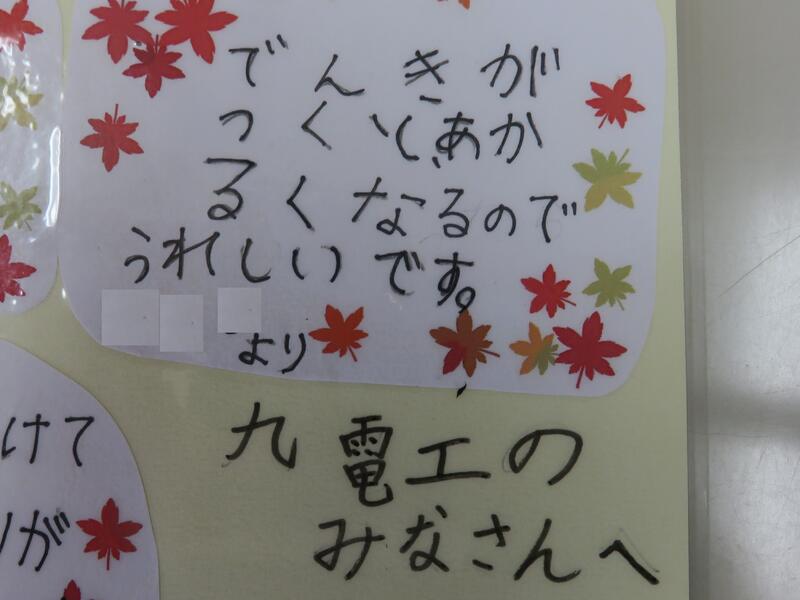 でんきが
つくと、あか
るくなるので
うれしいです。
より
けて
りが
九電工の
みなさんへ